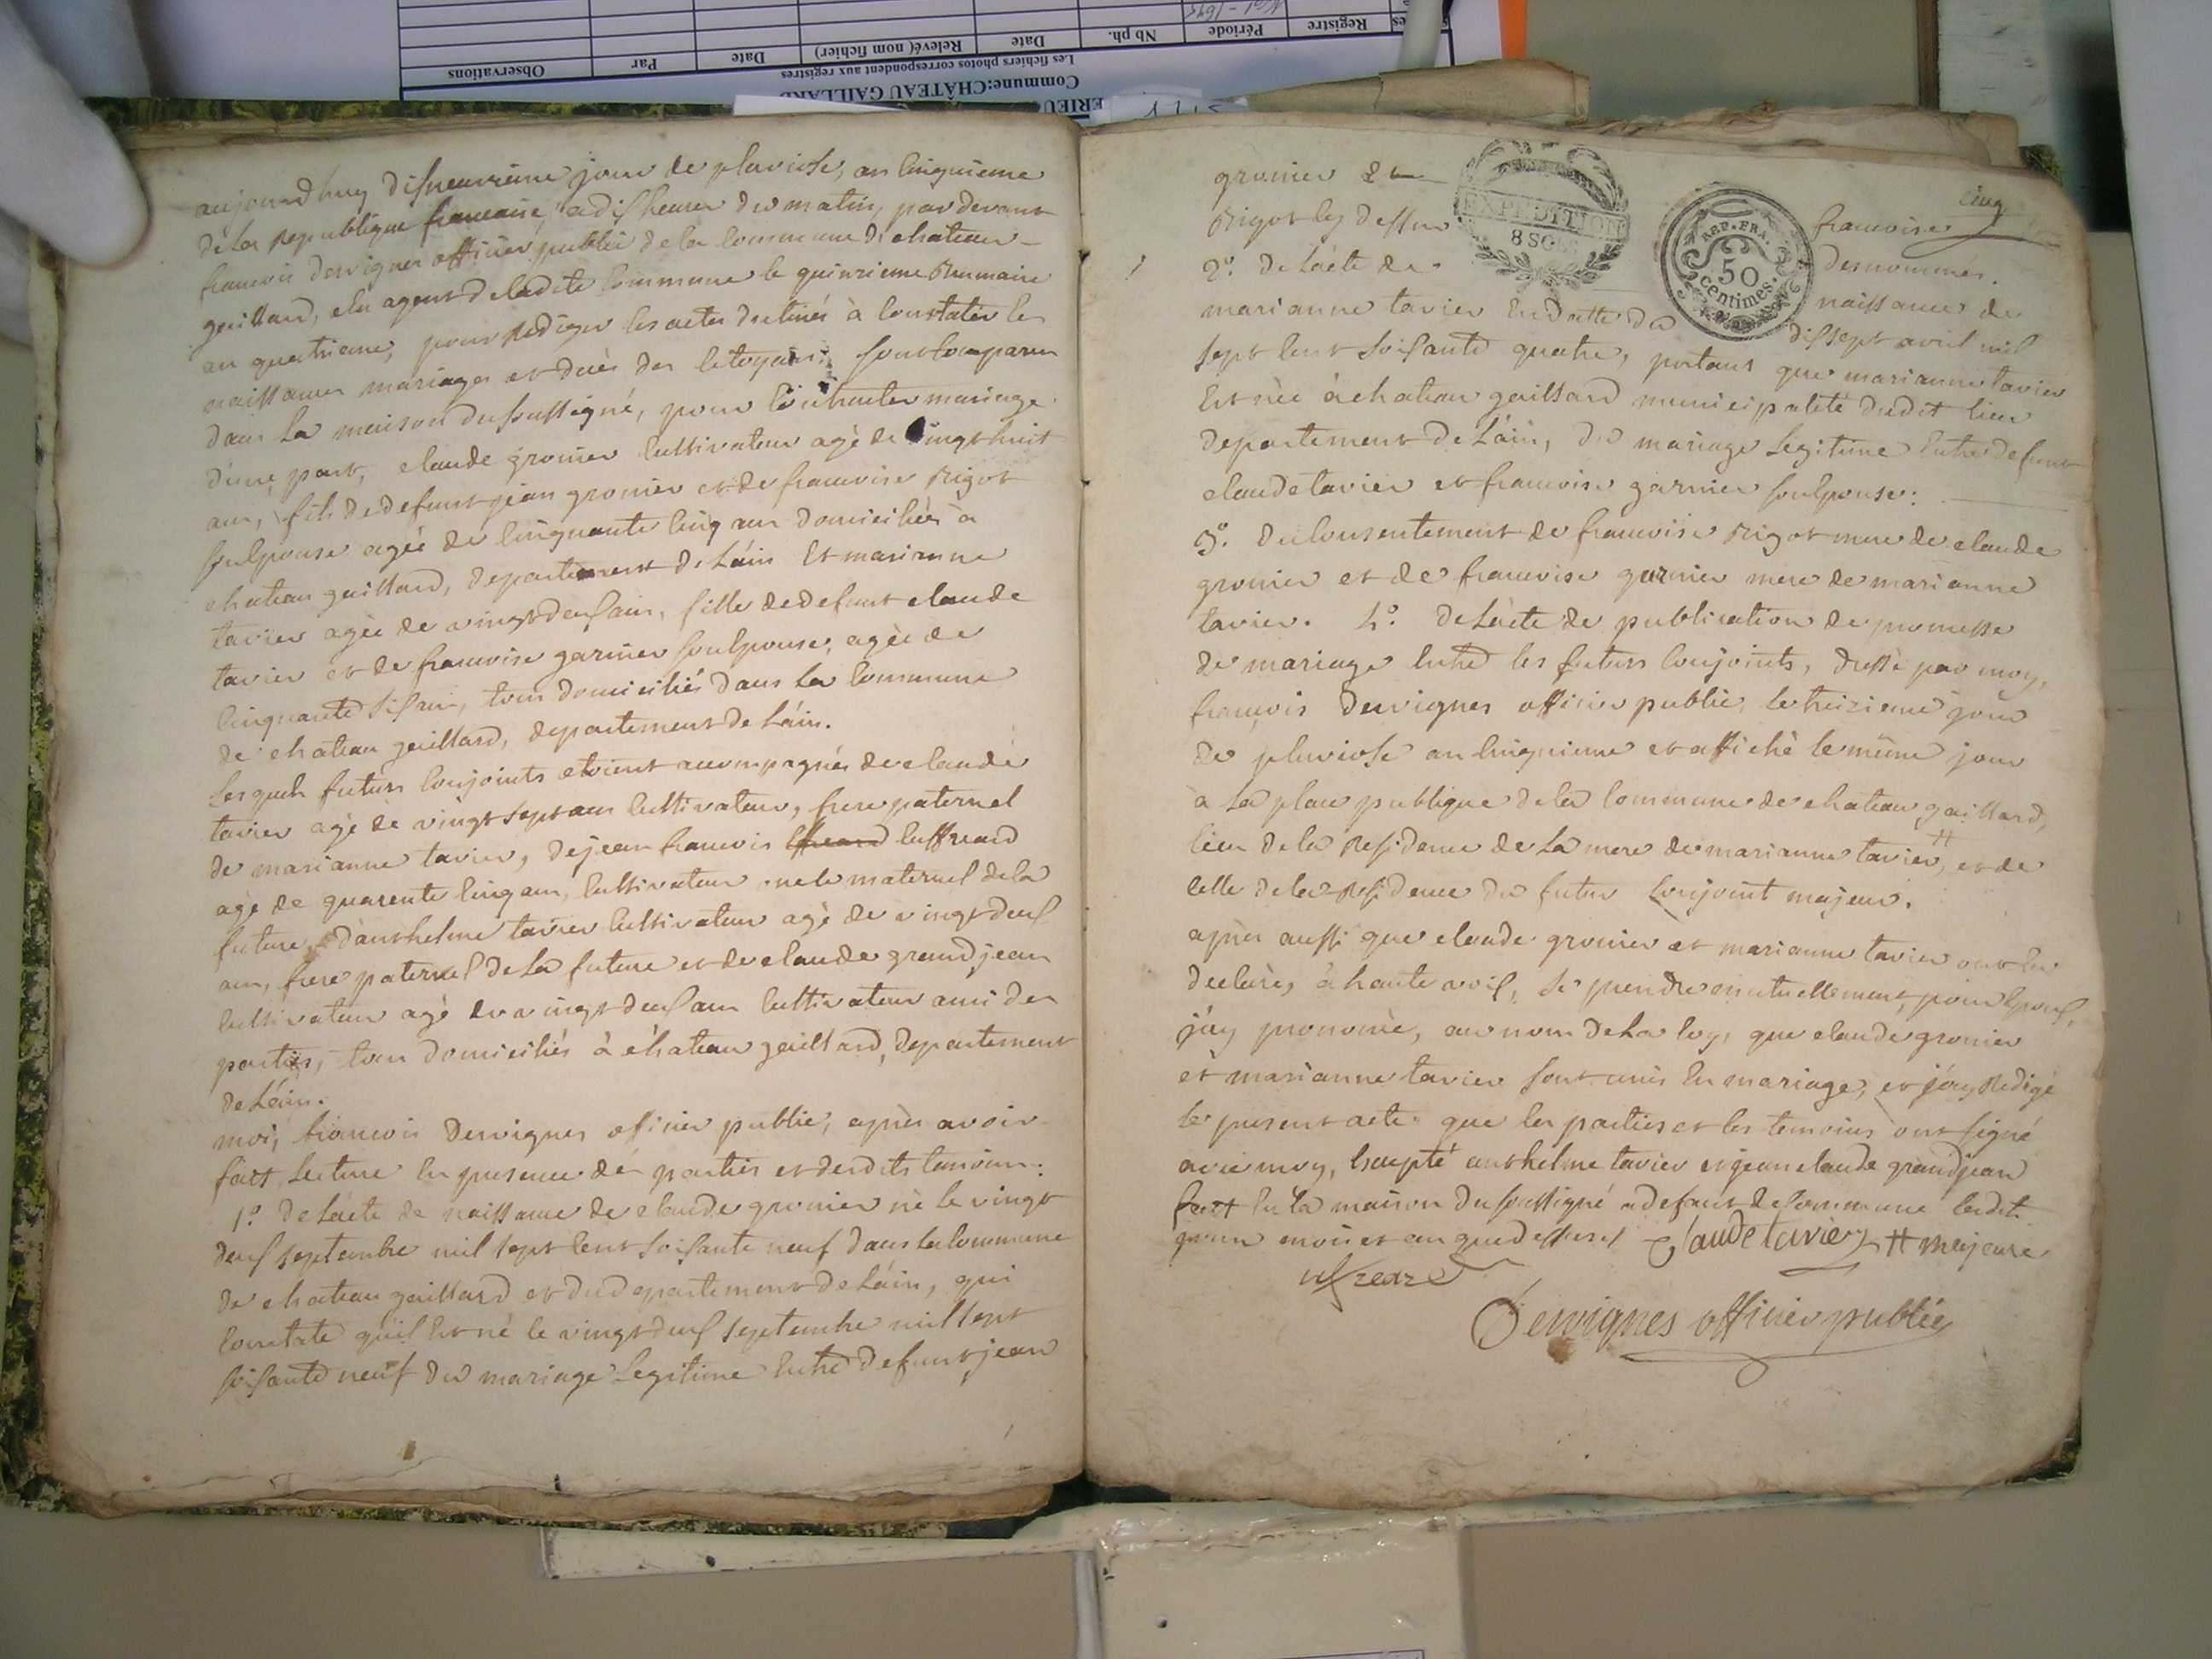 Observations
Par
Date
Relevé( nom fichier)
Date
Nb ph.
Période
Registre
Les fichiers photos correspondent aux registres
Commune:CHÂTEAU GAILLARD
ERIEU
aujourdhuy disneuvieme jour de pluviose, an cinquieme
de la Republique francaise, a dis heures du matin, par devant
francois dervignes officier public de la commune de chateau-
gaillard, elu agent de la dite commune le quinzieme Brumaire
an quatrieme, pour Rediger les actes destinés à constater les
naissances mariages et decès des citoyens; sont comparus
dans la maison du soussigné, pour li contracter mariage
d'une part, claude gronier cultivateur agé de vingt huit
ans, fils de defunt jean gronier et de francoise Rigot
son epouse agée de cinquante cinq ans domiciliés à
chateau gaillard, departement de L'ain Et marianne
tavier agée de vingt deus ans, fille de defunt claude
tavier et de francoise garnier son epouse, agée de
cinquante sis ans, tous domiciliés dans la commune
de chateau gaillard, departement de L'ain.
Lesquels futurs conjoints etoient accompagnés de claude
tavier agé de vingt sept ans cultivateur, frere paternel
de marianne tavier, de jean francois cuffreard
agé de quarente cinq ans, cultivateur oncle maternel de la
future, d'anthelme tavier cultivateur agé de vingt deus
ans, frere paternel de La future et de claude grandjean
cultivateur agé de vingt deus ans cultivateur ami des
parties, tous domiciliés à chateau gaillard, departement
de L'ain.
moi, francois Dervignes officier public, après avoir
fait Lecture en presence des parties et desdits temoins:
1.º de L'acte de naissance de claude gronier né le vingt
deus septembre mil sept cent soisante neuf dans la commune
de chateau gaillard et du departement de L'ain, qui
constate qu'il Est né le vingt deus septembre mil sept
soisante neuf du mariage Legitime Entre defunt jean
cinq
gronier et francoise
Rigot cy dessus denommés.
EXPEDITION
8 SOLS
REP. FRA.
50
centimes.
2.º de L'acte de naissance de
marianne tavier En datte du dissept avril mil
sept cent soisante quatre, portant que marianne tavier
Est née à chateau gaillard municipalité dudit lieu
departement de L'ain, du mariage Legitime Entre defunt
claude tavier et francoise garnier son epouse:
3.º du consentement de francoise Rigot mere de claude
gronier et de francoise garnier mere de marianne
tavier. 4.º de L'acte de publication de promesse
de mariage Entre les futurs conjoints, dressé par moy,
françois Dervignes officier public, le treizieme jour
de pluviose an cinquieme et affiché le même jour
à La place publique de la commune de chateau gaillard,
lieu de la Residence de La mere de marianne tavier #, et de
celle de la Residence du futur conjoint majeur.
après aussi que claude gronier et marianne tavier ont Eu
declaré, à haute vois, se prendre mutuellement, pour Epous,
j'ay prononcé, au nom de La loy, que claude gronier
et marianne tavier sont unis En mariage, et j'ay Redigé
le present acte que les parties et les temoins ont signé
avec moy, Excepté anthelme tavier et jean claude grandjean
fait En la maison du soussigné a defaut de commune lesdits
jour mois et an que dessus Claude tavier # majeure
Dervignes officier public